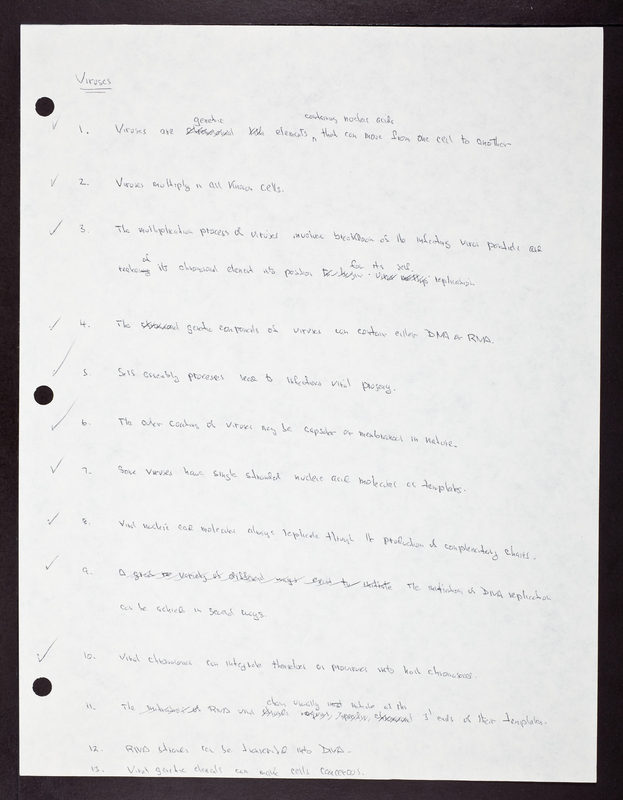 Viruses
genetic containing nucleic acids
1. Viruses are elements, that can move from one cell to another
2. Viruses multiply in all known cells.
3. The multiplication process of viruses involves breakdown of the infecting viral particle and
of for its self
its chromosomal element into position replication
4. The genetic components of viruses can contain either DNA or RNA.
5. Self assembly processes lead to infectious viral progeny.
6. The outer coating of viruses may be capsular or membranous in nature.
7. Some viruses have single stranded nucleic acid molecules as templates.
8. Viral nucleic acid molecules always replicate through the production of complementary chains.
9. A great variety of different ways exist to initiate The initiation of DNA replication
can be achieved in several ways.
10. Viral chromosomes can integrate themselves as proviruses into host chromosomes.
chains usually initiate at the
11. The RNA viral 3' ends of their templates.
12. RNA strands can be transcribed into DNA.
13. Viral genetic elements can make cells cancerous.